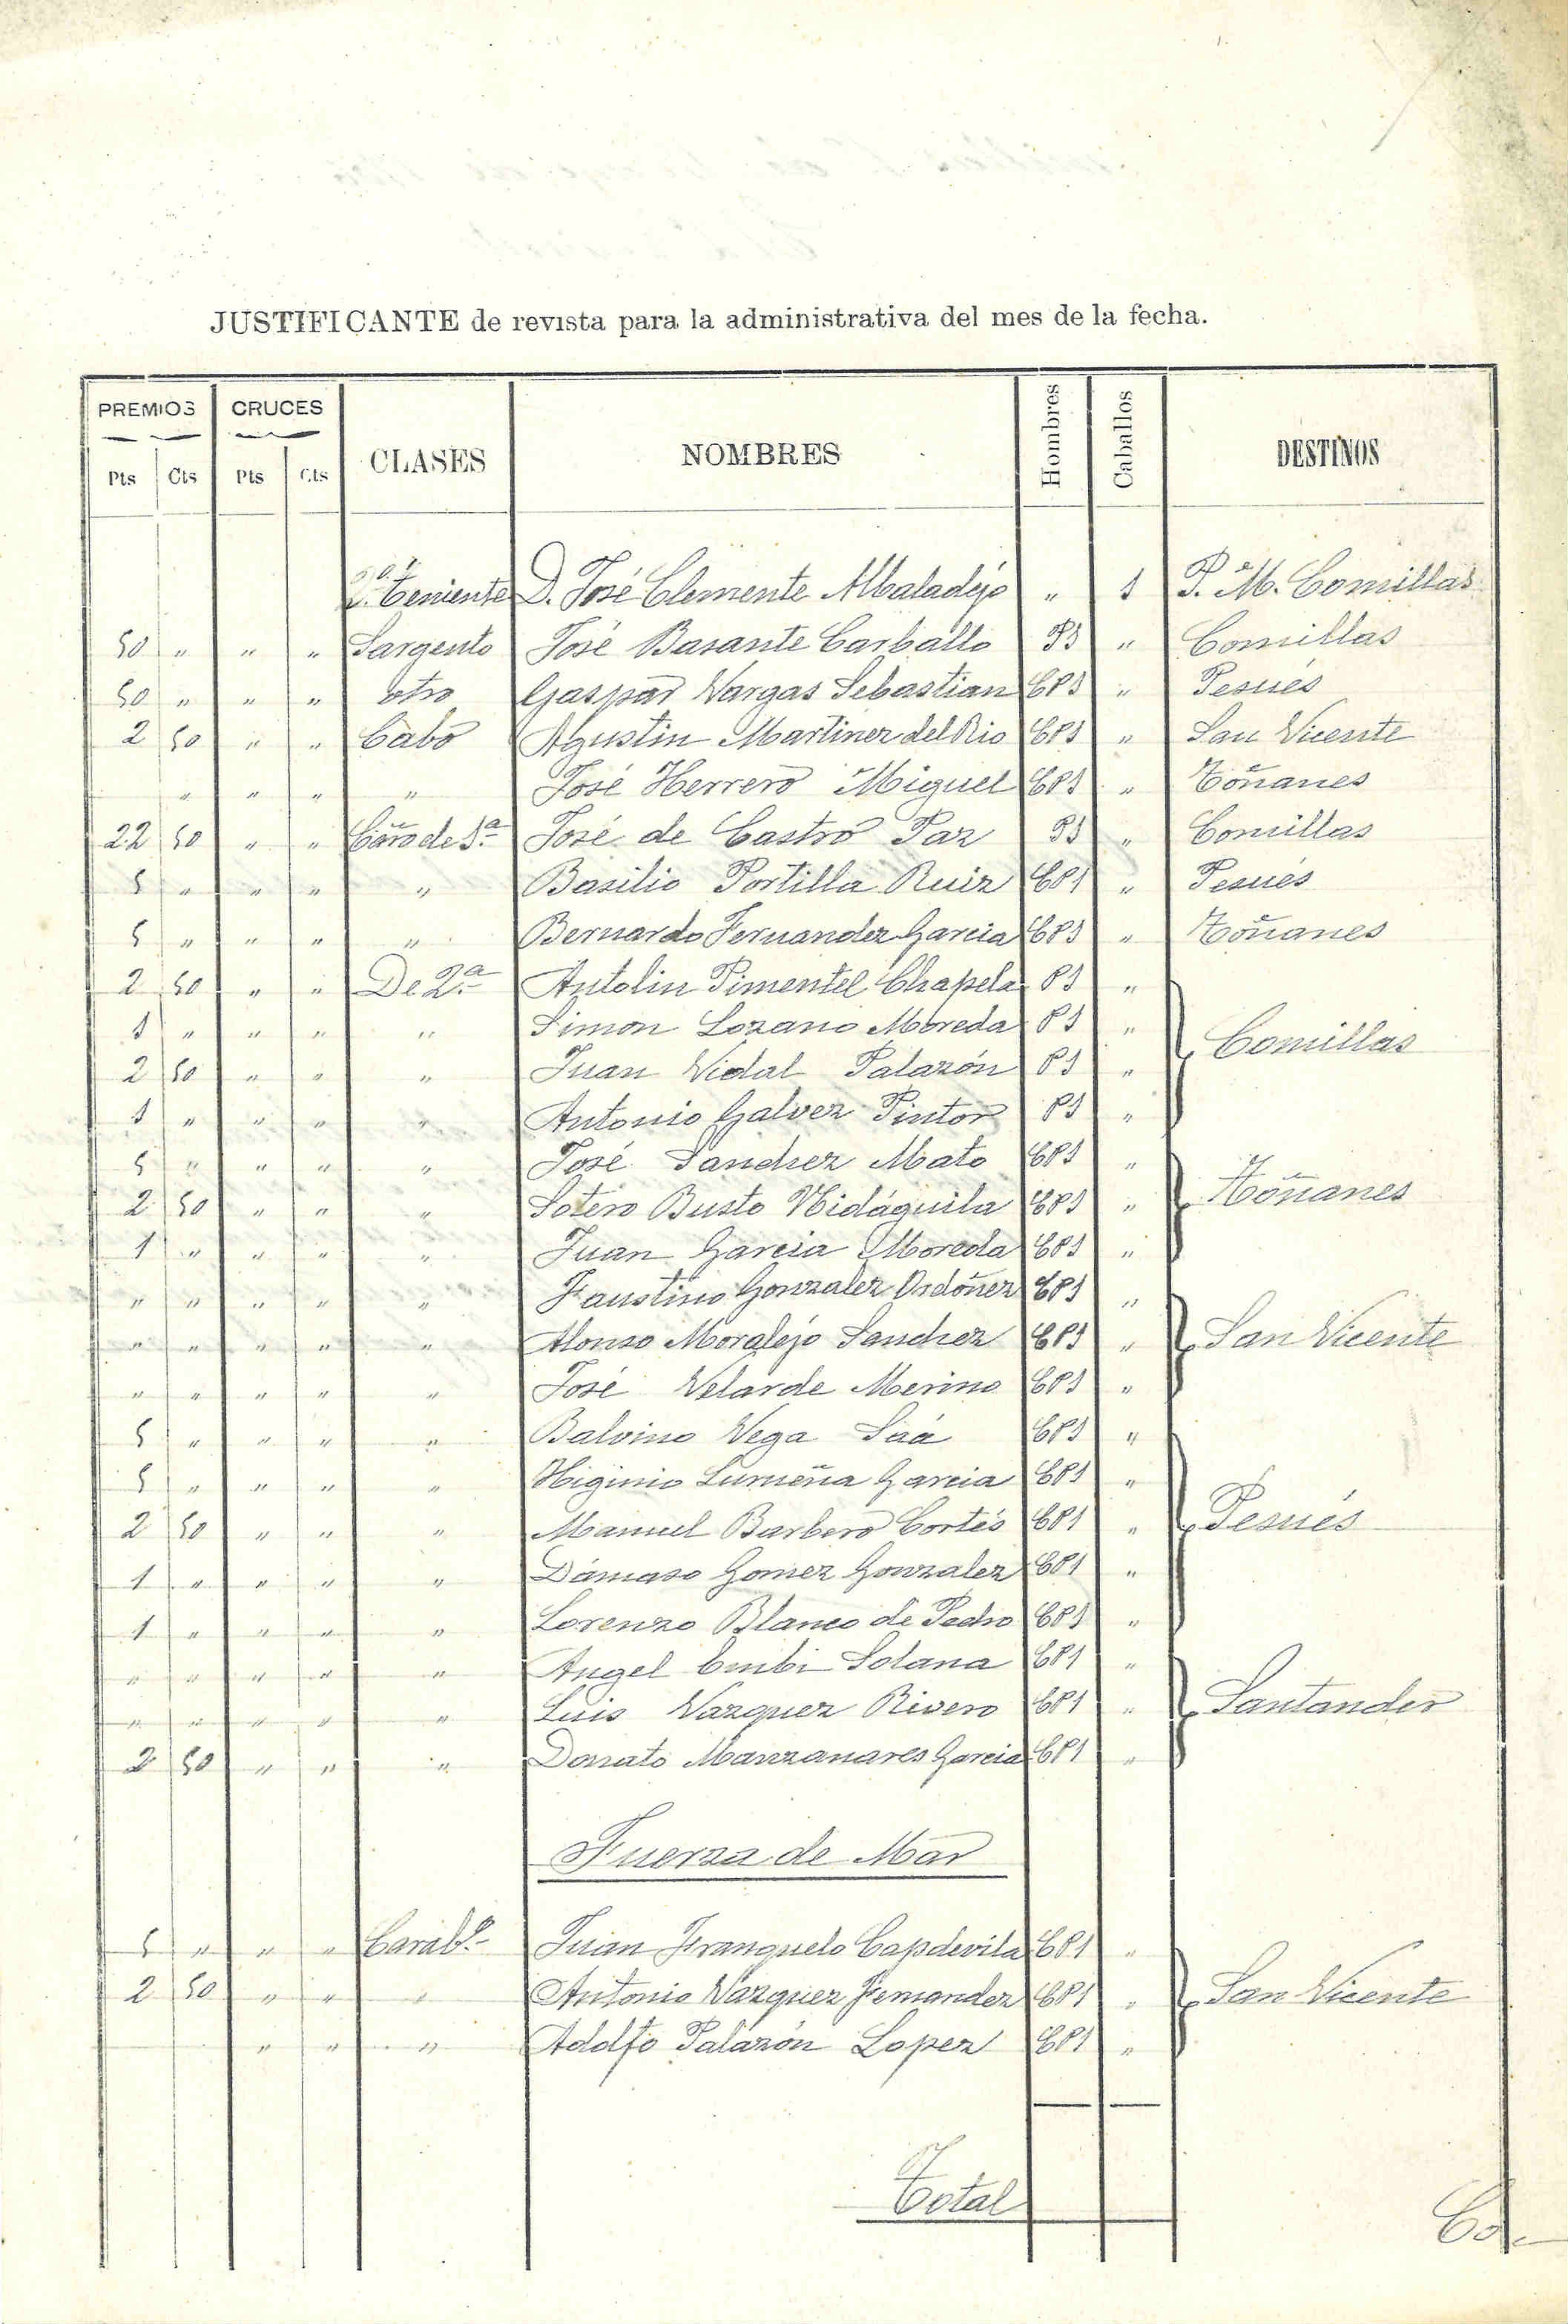 JUSTIFICANTE de revista para la administrativa del mes de la fecha.
PREMIOS CRUCES CLASES NOMBRES Hombres Caballos DESTINOS
Pts Cts Pts Cts
2.º Teniente D. José Clemente Albaladéjo " 1 P. M. Comillas
50 " " " Sargento José Basante Carballo P1 " Comillas
50 " " " otro Gaspar Vargas Sebastian CP1 " Pesués
2 50 " " Cabo Agustin Martinez del Rio CP1 " San Vicente
" " " " José Herrero Miguel CP1 " Toñanes
22 50 " " Cañro de 1.ª José de Castro Paz P1 " Comillas
5 " " " " Basilio Portilla Ruiz CP1 " Pesués
5 " " " " Bernardo Fernandez Garcia CP1 " Toñanes
2 50 " " De 2.ª Antolin Pimentel Chapela P1 "
1 " " " " Simon Lozano Moreda P1 " Comillas
2 50 " " " Juan Vidal Palazón P1 "
1 " " " " Antonio Galvez Pintor P1 "
5 " " " " José Sanchez Mato CP1 "
2 50 " " " Sotero Busto Vidáguila CP1 " Toñanes
1 " " " " Juan Garcia Moreda CP1 "
" " " " " Faustino Gonzalez Ordóñez CP1 "
" " " " " Alonso Moraléjo Sanchez CP1 " San Vicente
" " " " " José Velarde Merino CP1 "
5 " " " " Balvino Vega Sáa CP1 "
5 " " " " Higinio Lumeña Garcia CP1 "
2 50 " " " Manuel Barbero Cortés CP1 " Pesués
1 " " " " Dámaso Gomez Gonzalez CP1 "
1 " " " " Lorenzo Blanco de Pedro CP1 "
" " " " " Angel Solana CP1 "
" " " " " Luis Vazquez Rivero CP1 " Santander
2 50 " " " Donato Manzanares Garcia CP1 "
Fuerza de Mar
5 " " " Carab.º Juan Franquelo Capdevila CP1 "
2 50 " " " Antonio Vázquez Fernandez CP1 " San Vicente
" " " Adolfo Palazón Lopez CP1 "
Total
Co-